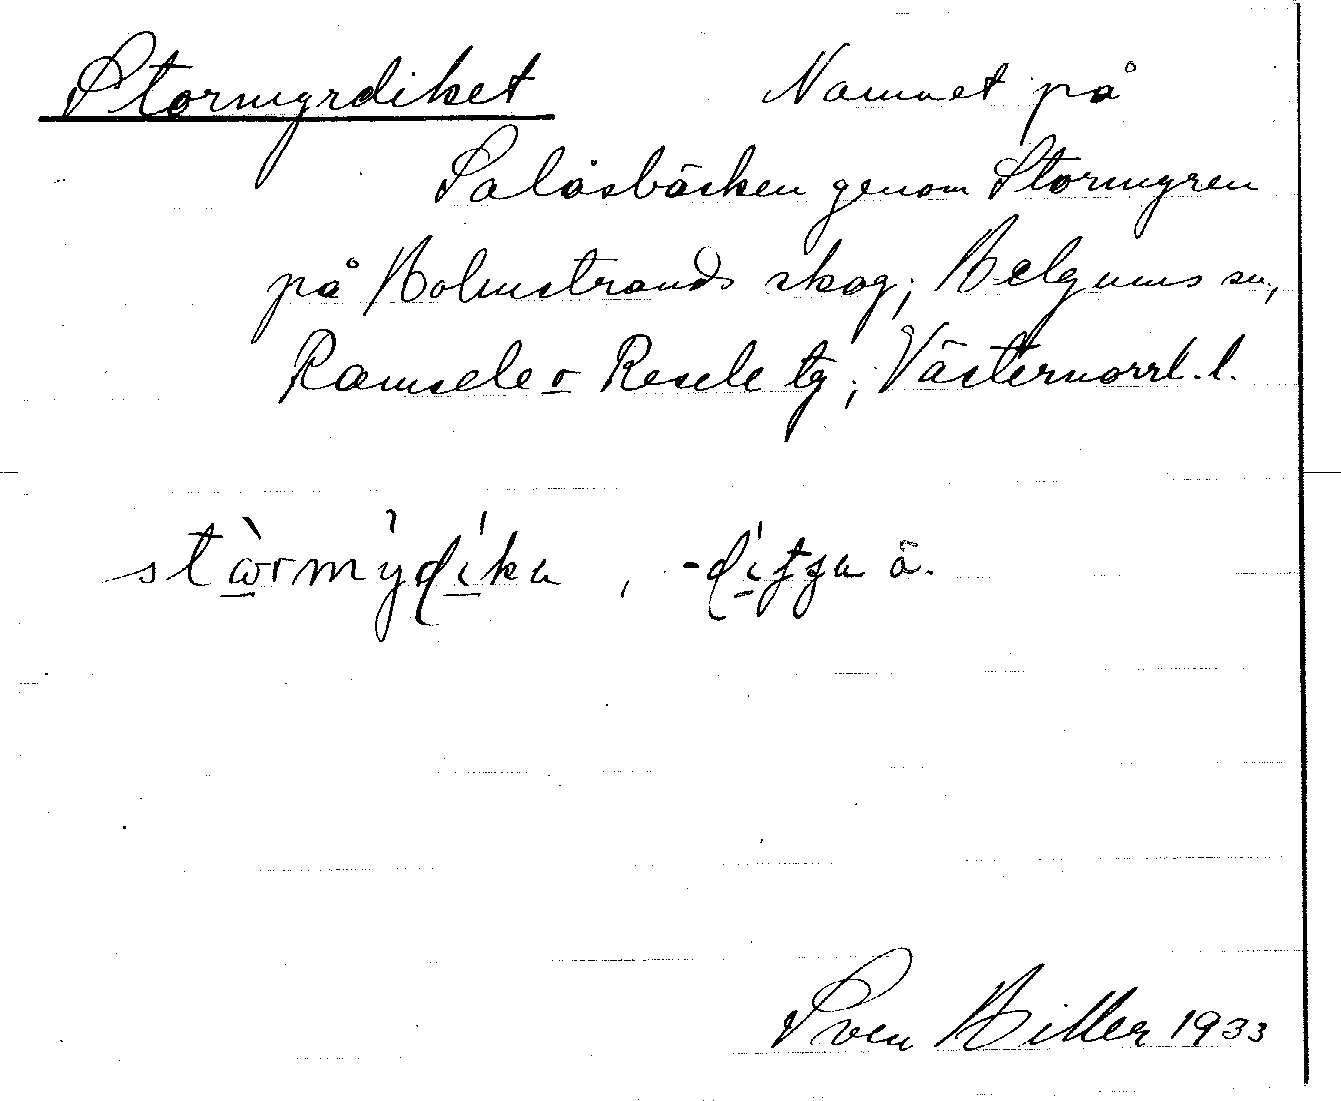 Stormyrdiket Namnet på
Salåsbäcken genom Stormyren
på Holmstrands skog; Helgums sn,
Ramsele o Resele tg; Västernorrl. l.
stɷ̀rmýdíka , - ä.
Sven Hiller 1933